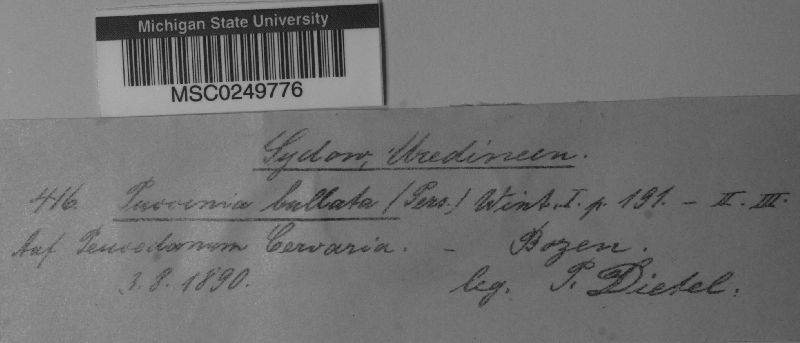 Michigan State University
MSC0249776
Sydow, Uredineen.
416. Puccinia bullata (Pers.) Wint. I. p. 191. - II. III.
Auf Peucedanum Cervaria. - Bozen.
3. 8. 1890. leg. P. Dietel.